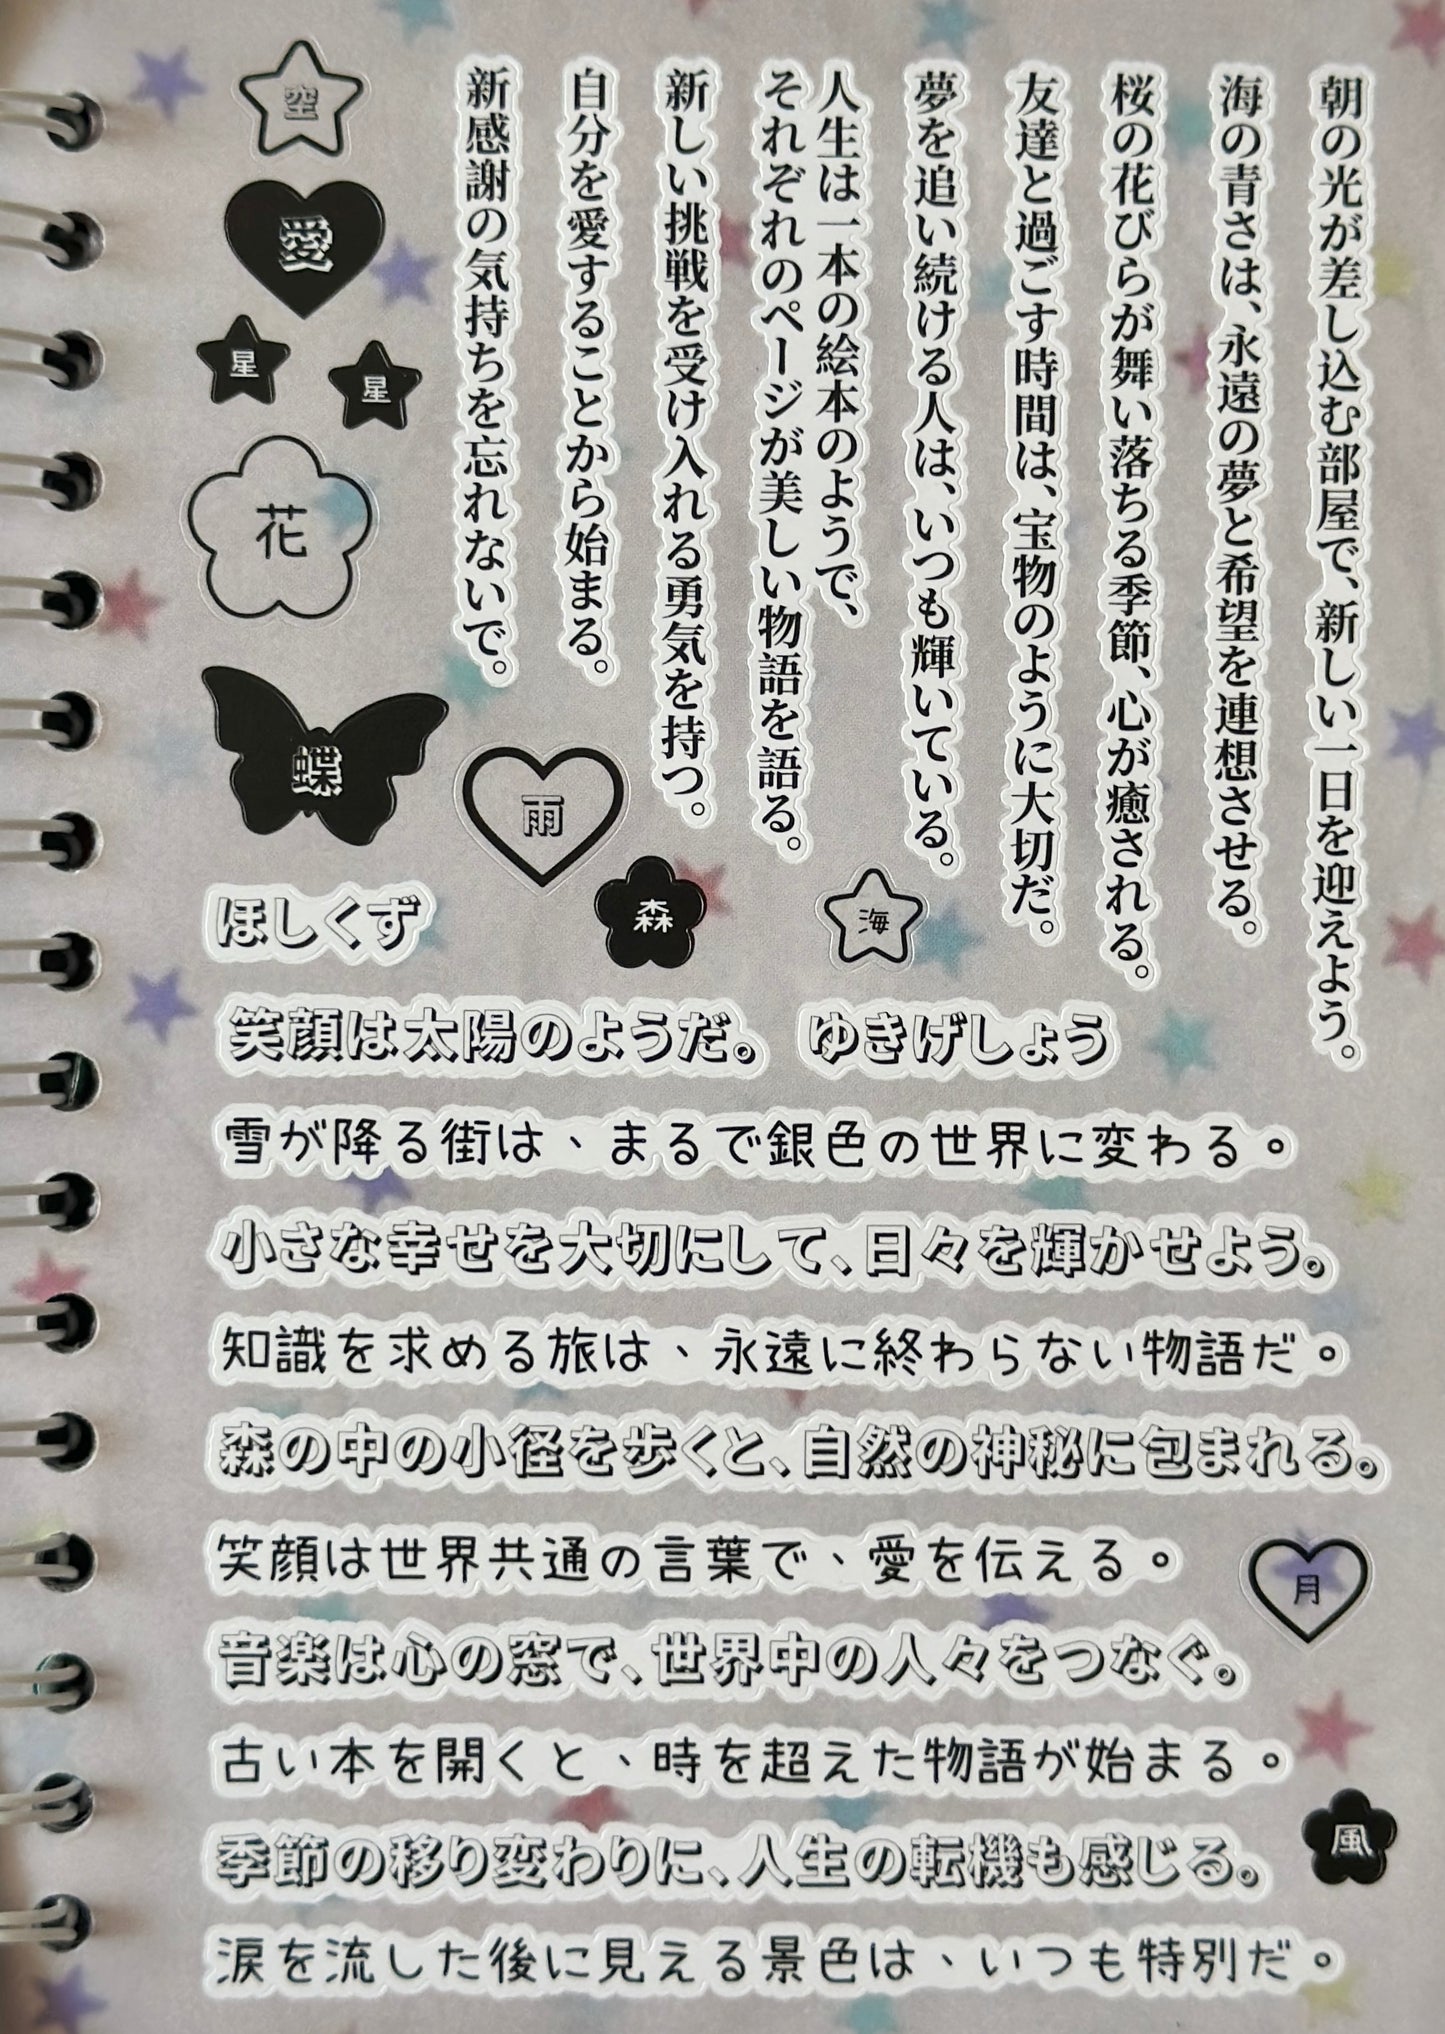 朝の光が差し込む部屋で、新しい一日を迎えよう。
海の青さは、永遠の夢と希望を連想させる。
桜の花びらが舞い落ちる季節、心が癒される。
友達と過ごす時間は、宝物のように大切だ。
夢を追い続ける人は、いつも輝いている。
人生は一本の絵本のようで、
それぞれのページが美しい物語を語る。
新しい挑戦を受け入れる勇気を持つ。
自分を愛することから始まる。
新感謝の気持ちを忘れないで。
空
愛
星
星
花
蝶
雨
森
海
ほしくず
笑顔は太陽のようだ。
ゆきげしょう
雪が降る街は、まるで銀色の世界に変わる。
小さな幸せを大切にして、日々を輝かせよう。
知識を求める旅は、永遠に終わらない物語だ。
森の中の小径を歩くと、自然の神秘に包まれる。
笑顔は世界共通の言葉で、愛を伝える。
月
音楽は心の窓で、世界中の人々をつなぐ。
古い本を開くと、時を超えた物語が始まる。
季節の移り変わりに、人生の転機も感じる。
風
涙を流した後に見える景色は、いつも特別だ。